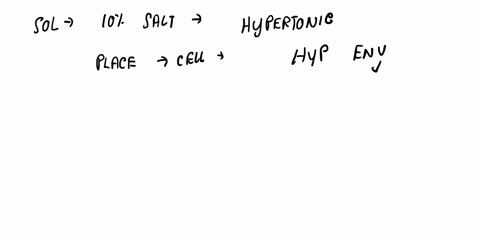 SOL → 10% SALT → HYPERTONIC
PLACE → CELL → HYP ENV ✓